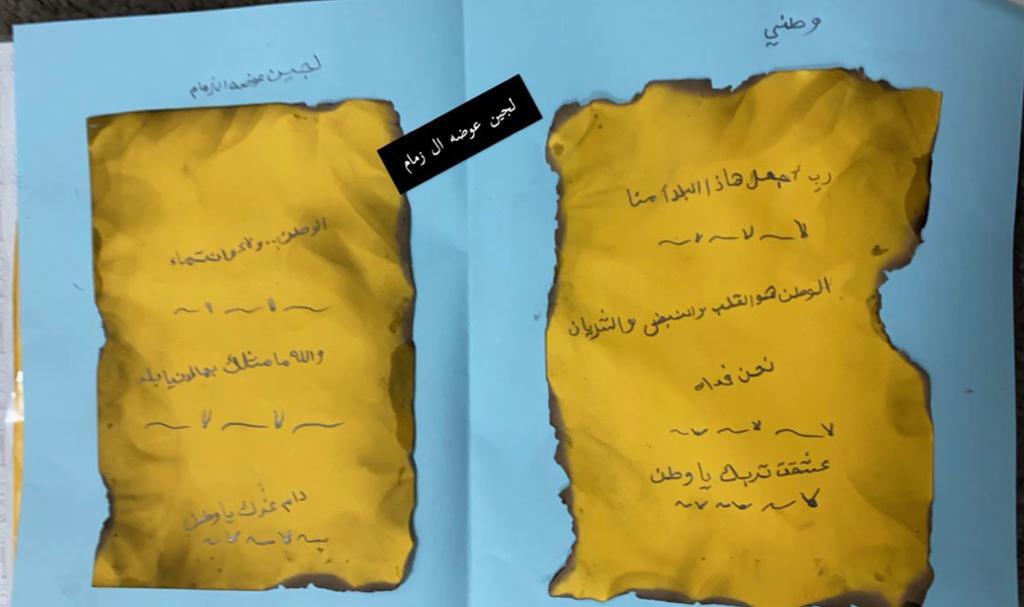 وطني
رب أجعل هاذا البلد أمنا
الوطن هو القلب والنبض والشريان
نحن فداه
عشقت تربك يا وطن
لجين عوضه ال زمام
لجين عوضه ال زمام
الوطن.. ولاء وانتماء
والله ما مثلك بهالدنيا بلد
دام عزك يا وطن